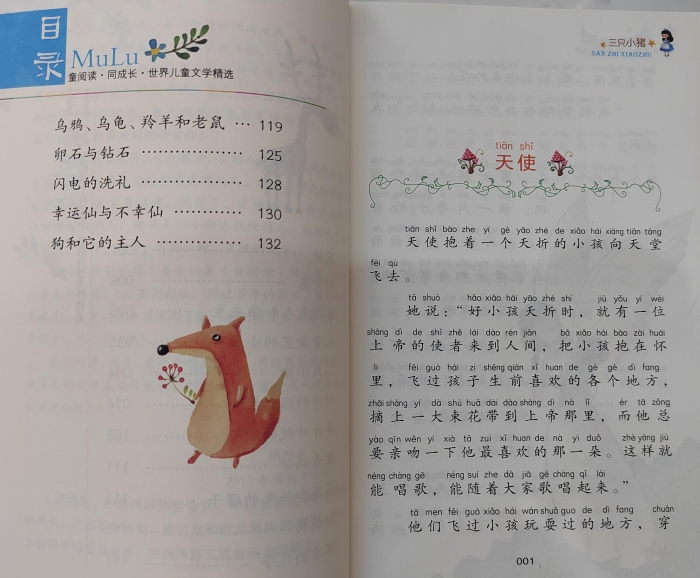 目录
MuLu
童阅读·同成长·世界儿童文学精选
乌鸦、乌龟、羚羊和老鼠 … 119
卵石与钻石 ……………… 125
闪电的洗礼 ……………… 128
幸运仙与不幸仙 ………… 130
狗和它的主人 …………… 132
三只小猪
SAN ZHI XIAOZHU
tiān shǐ
天使
tiān shǐ bào zhe yí gè yāo zhé de xiǎo hái xiàng tiān táng
天使抱着一个夭折的小孩向天堂
fēi qù
飞去。
tā shuō hǎo xiǎo hái yāo zhé shí jiù yǒu yí wèi
她说：“好小孩夭折时，就有一位
shàng dì de shǐ zhě lái dào rén jiān bǎ xiǎo hái bào zài huái
上帝的使者来到人间，把小孩抱在怀
lǐ fēi guò hái zi shēng qián xǐ huan de gè gè dì fang
里，飞过孩子生前喜欢的各个地方，
zhāi shàng yí dà shù huā dài dào shàng dì nà lǐ ér tā zǒng
摘上一大束花带到上帝那里，而他总
yào qīn wěn yí xià tā zuì xǐ huan de nà yì duǒ zhè yàng jiù
要亲吻一下他最喜欢的那一朵。这样就
néng chàng gē néng suí zhe dà jiā gē chàng qǐ lái
能唱歌，能随着大家歌唱起来。”
tā men fēi guò xiǎo hái wán shuǎ guo de dì fang chuān
他们飞过小孩玩耍过的地方，穿
001